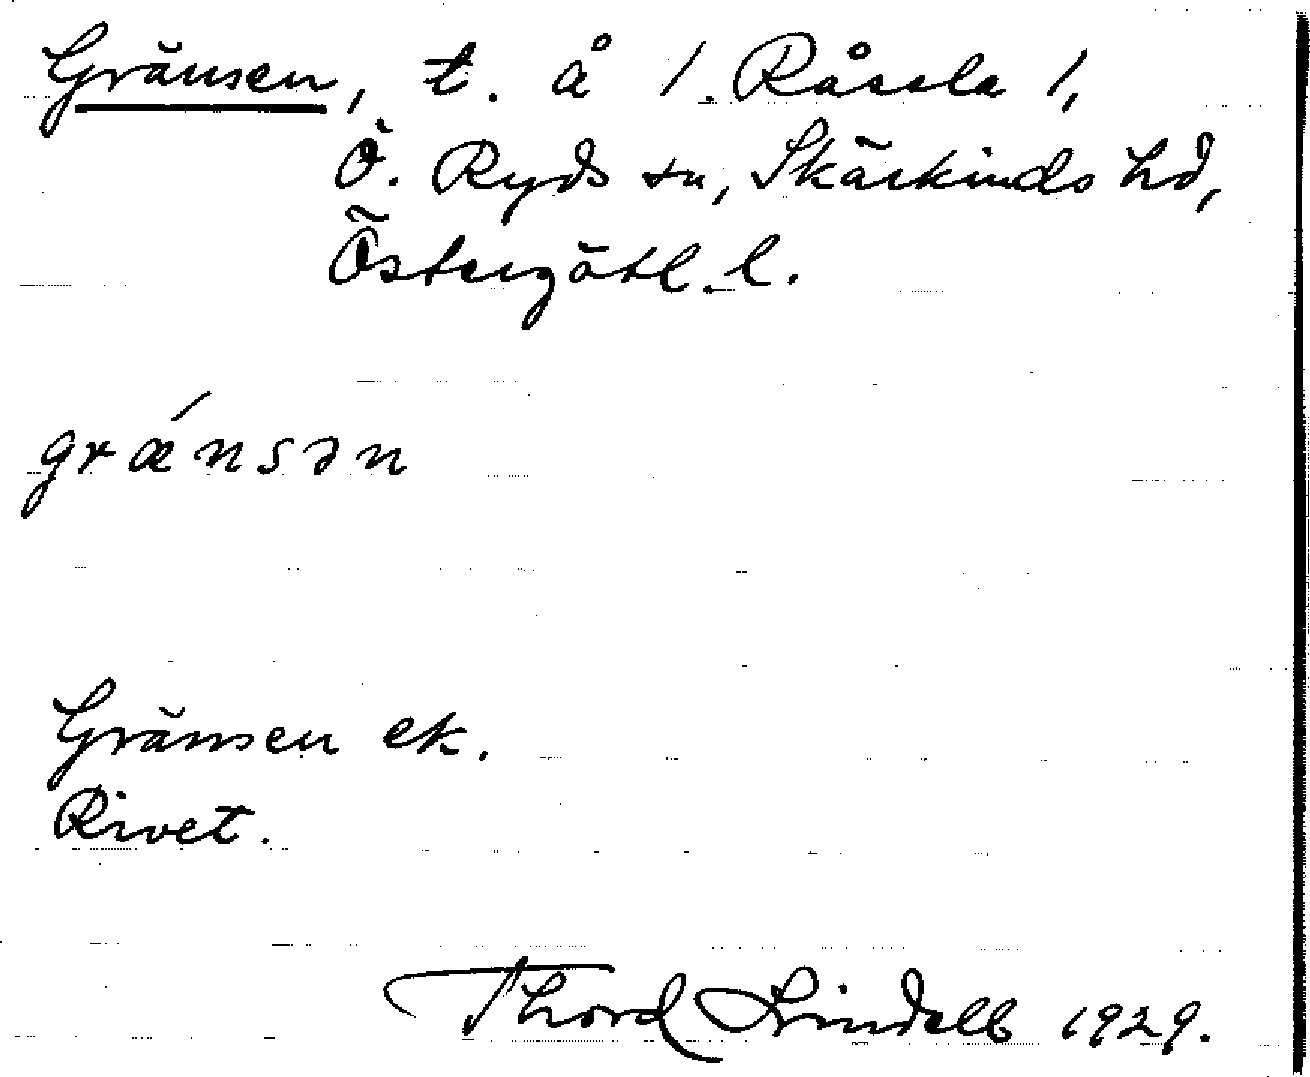 Gränsen, t. å /. Råssla /,
Ö. Ryds sn, Skärkinds hd,
Östergötl. l.
grǽnsən
Gränsen ek.
Rivet.
Thord Lindell 1929.